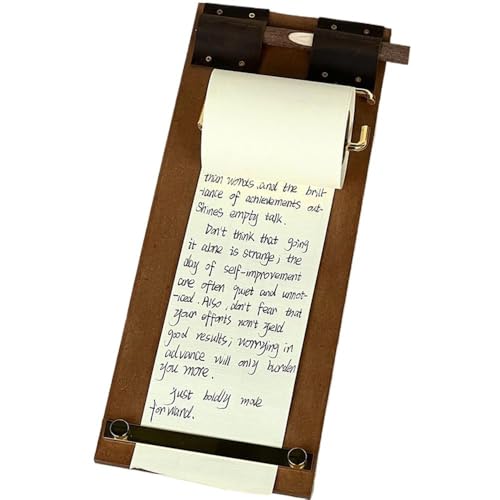 than words, and the brill-
iance of achievements out-
shines empty talk.
Don't think that going
it alone is strange; the
day of self-improvement
are often quiet and unnot-
iced. Also, don't fear that
your efforts won't yield
good results; worrying in
advance will only burden
you more.
Just boldly move
forward.